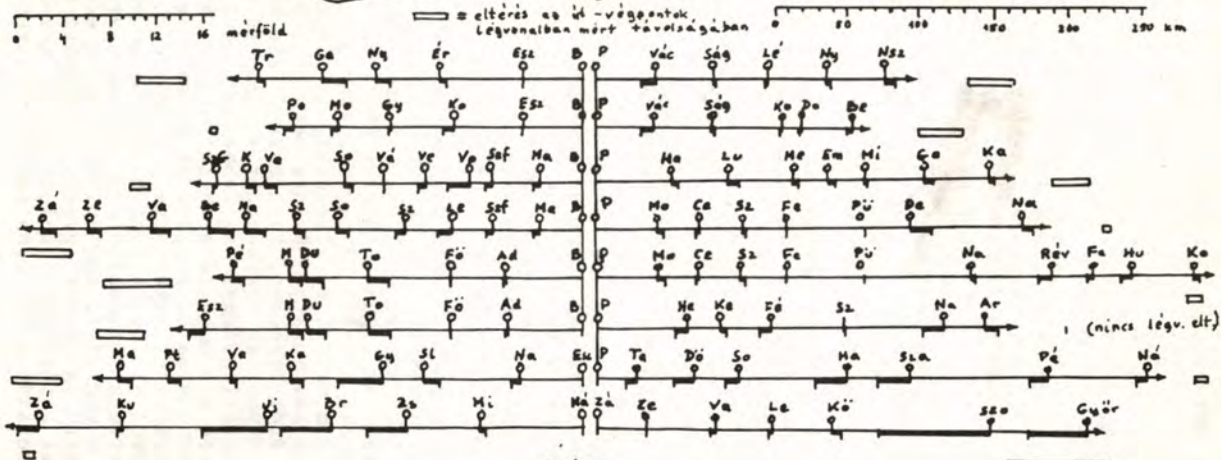 0 4 8 12 16 mérföld
= eltérés az út-végpontok légvonalban mért távolságában
0 50 100 150 200 250 km
Tr Ga Ér Esz B P Vác Ság Lé Ny Nsz
Po Mo Gy Ko Esz B P Vác Ság Ko Do Be
K Va So Vá Ve Szf Ma B P Ha Lu Me Em Mi Ka
Zá Ze Va Be Ha Sz So Sz Le Szf Ma B P Mo Ce Sz Fe Pü De Na
Pé M Du To Fö Ad B P Mo Ce Sz Fe Pü Na Rév Fe Hu Ko
Esz M Du To Fö Ad B P He Ke Fé Sz Na Ar
(nincs légv. elt.)
Ma Pt Va Ka Gy Sl Na P Te Dö So Ha Sza Pé Ná
Zá Ku Uj Br Zs Mi Zá Ze Va Le Kö Szo Győr